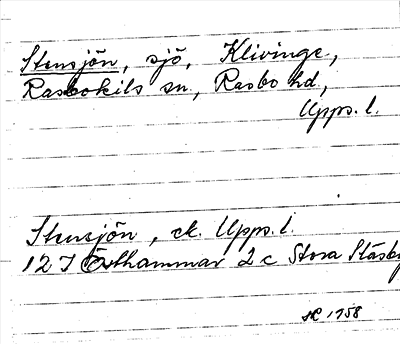 Stensjön, sjö, Klivinge,
Rasbokils sn, Rasbo hd,
Upps. l.
Stensjön, ek. Upps. l.
12 I Östhammar 2 c Stora Stäsby
1958